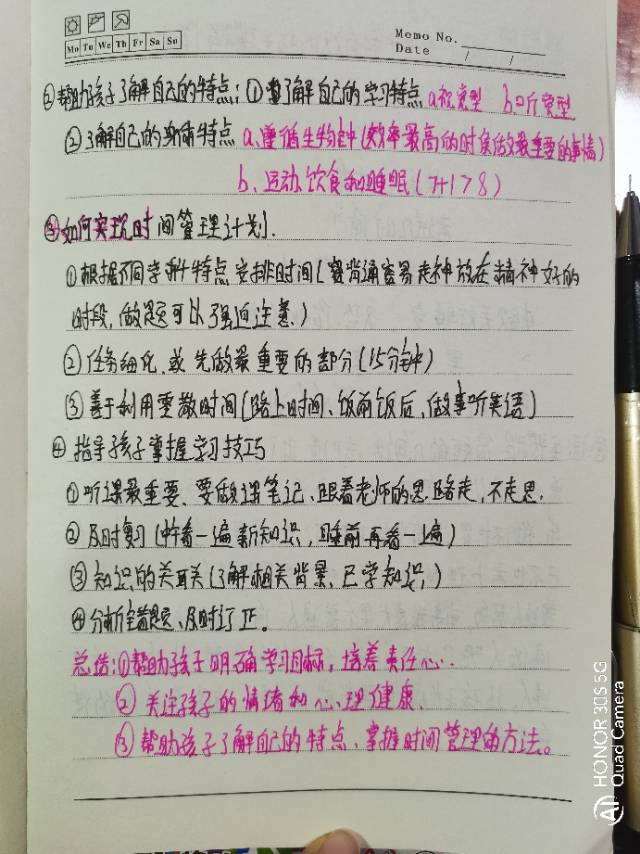 Memo No.
Mo Tu We Th Fr Sa Su
Date / /
②帮助孩子了解自己的特点:①要了解自己的学习特点 a.视觉型 b.听觉型
②了解自己的身体特点 a、遵循生物钟(效率最高的时候做最重要的事情)
b、运动、饮食和睡眠(7+1>8)
③如何实现时间管理计划.
①根据不同学科特点安排时间(要背诵容易走神放在精神好的
时段,做题可以强迫注意.)
②任务细化,或先做最重要的部分(15分钟)
③善于利用零散时间(路上时间、饭前饭后,做事听英语)
④指导孩子掌握学习技巧
①听课最重要、要做课笔记、跟着老师的思路走,不走思.
②及时复习(中午看一遍新知识,睡前再看一遍)
③知识的关联(了解相关背景、已学知识,)
④分析错题、及时订正。
总结:①帮助孩子明确学习目标,培养责任心.
②关注孩子的情绪和心理健康.
③帮助孩子了解自己的特点、掌握时间管理的方法。
HONOR 30S 5G
Quad Camera